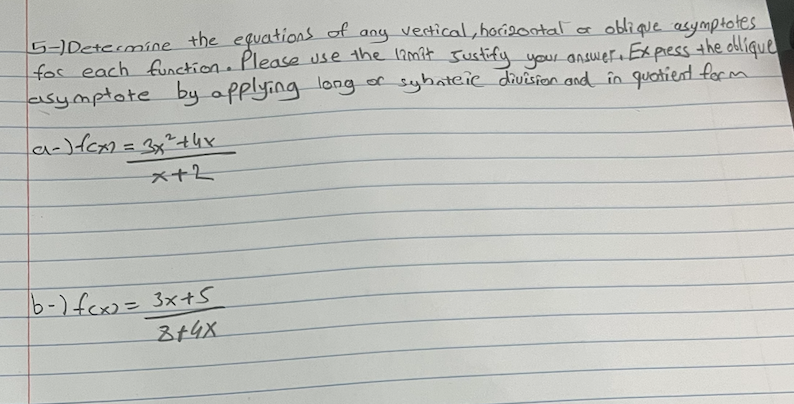 5-) Determine the equations of any vertical, horizontal or oblique asymptotes
for each function. Please use the limit Justify your answer. Express the oblique
asymptote by applying long or sybnteic division and in quotient form
a-) f(x) = 3x²+4x
x+2
b-) f(x) = 3x+5
8+4x